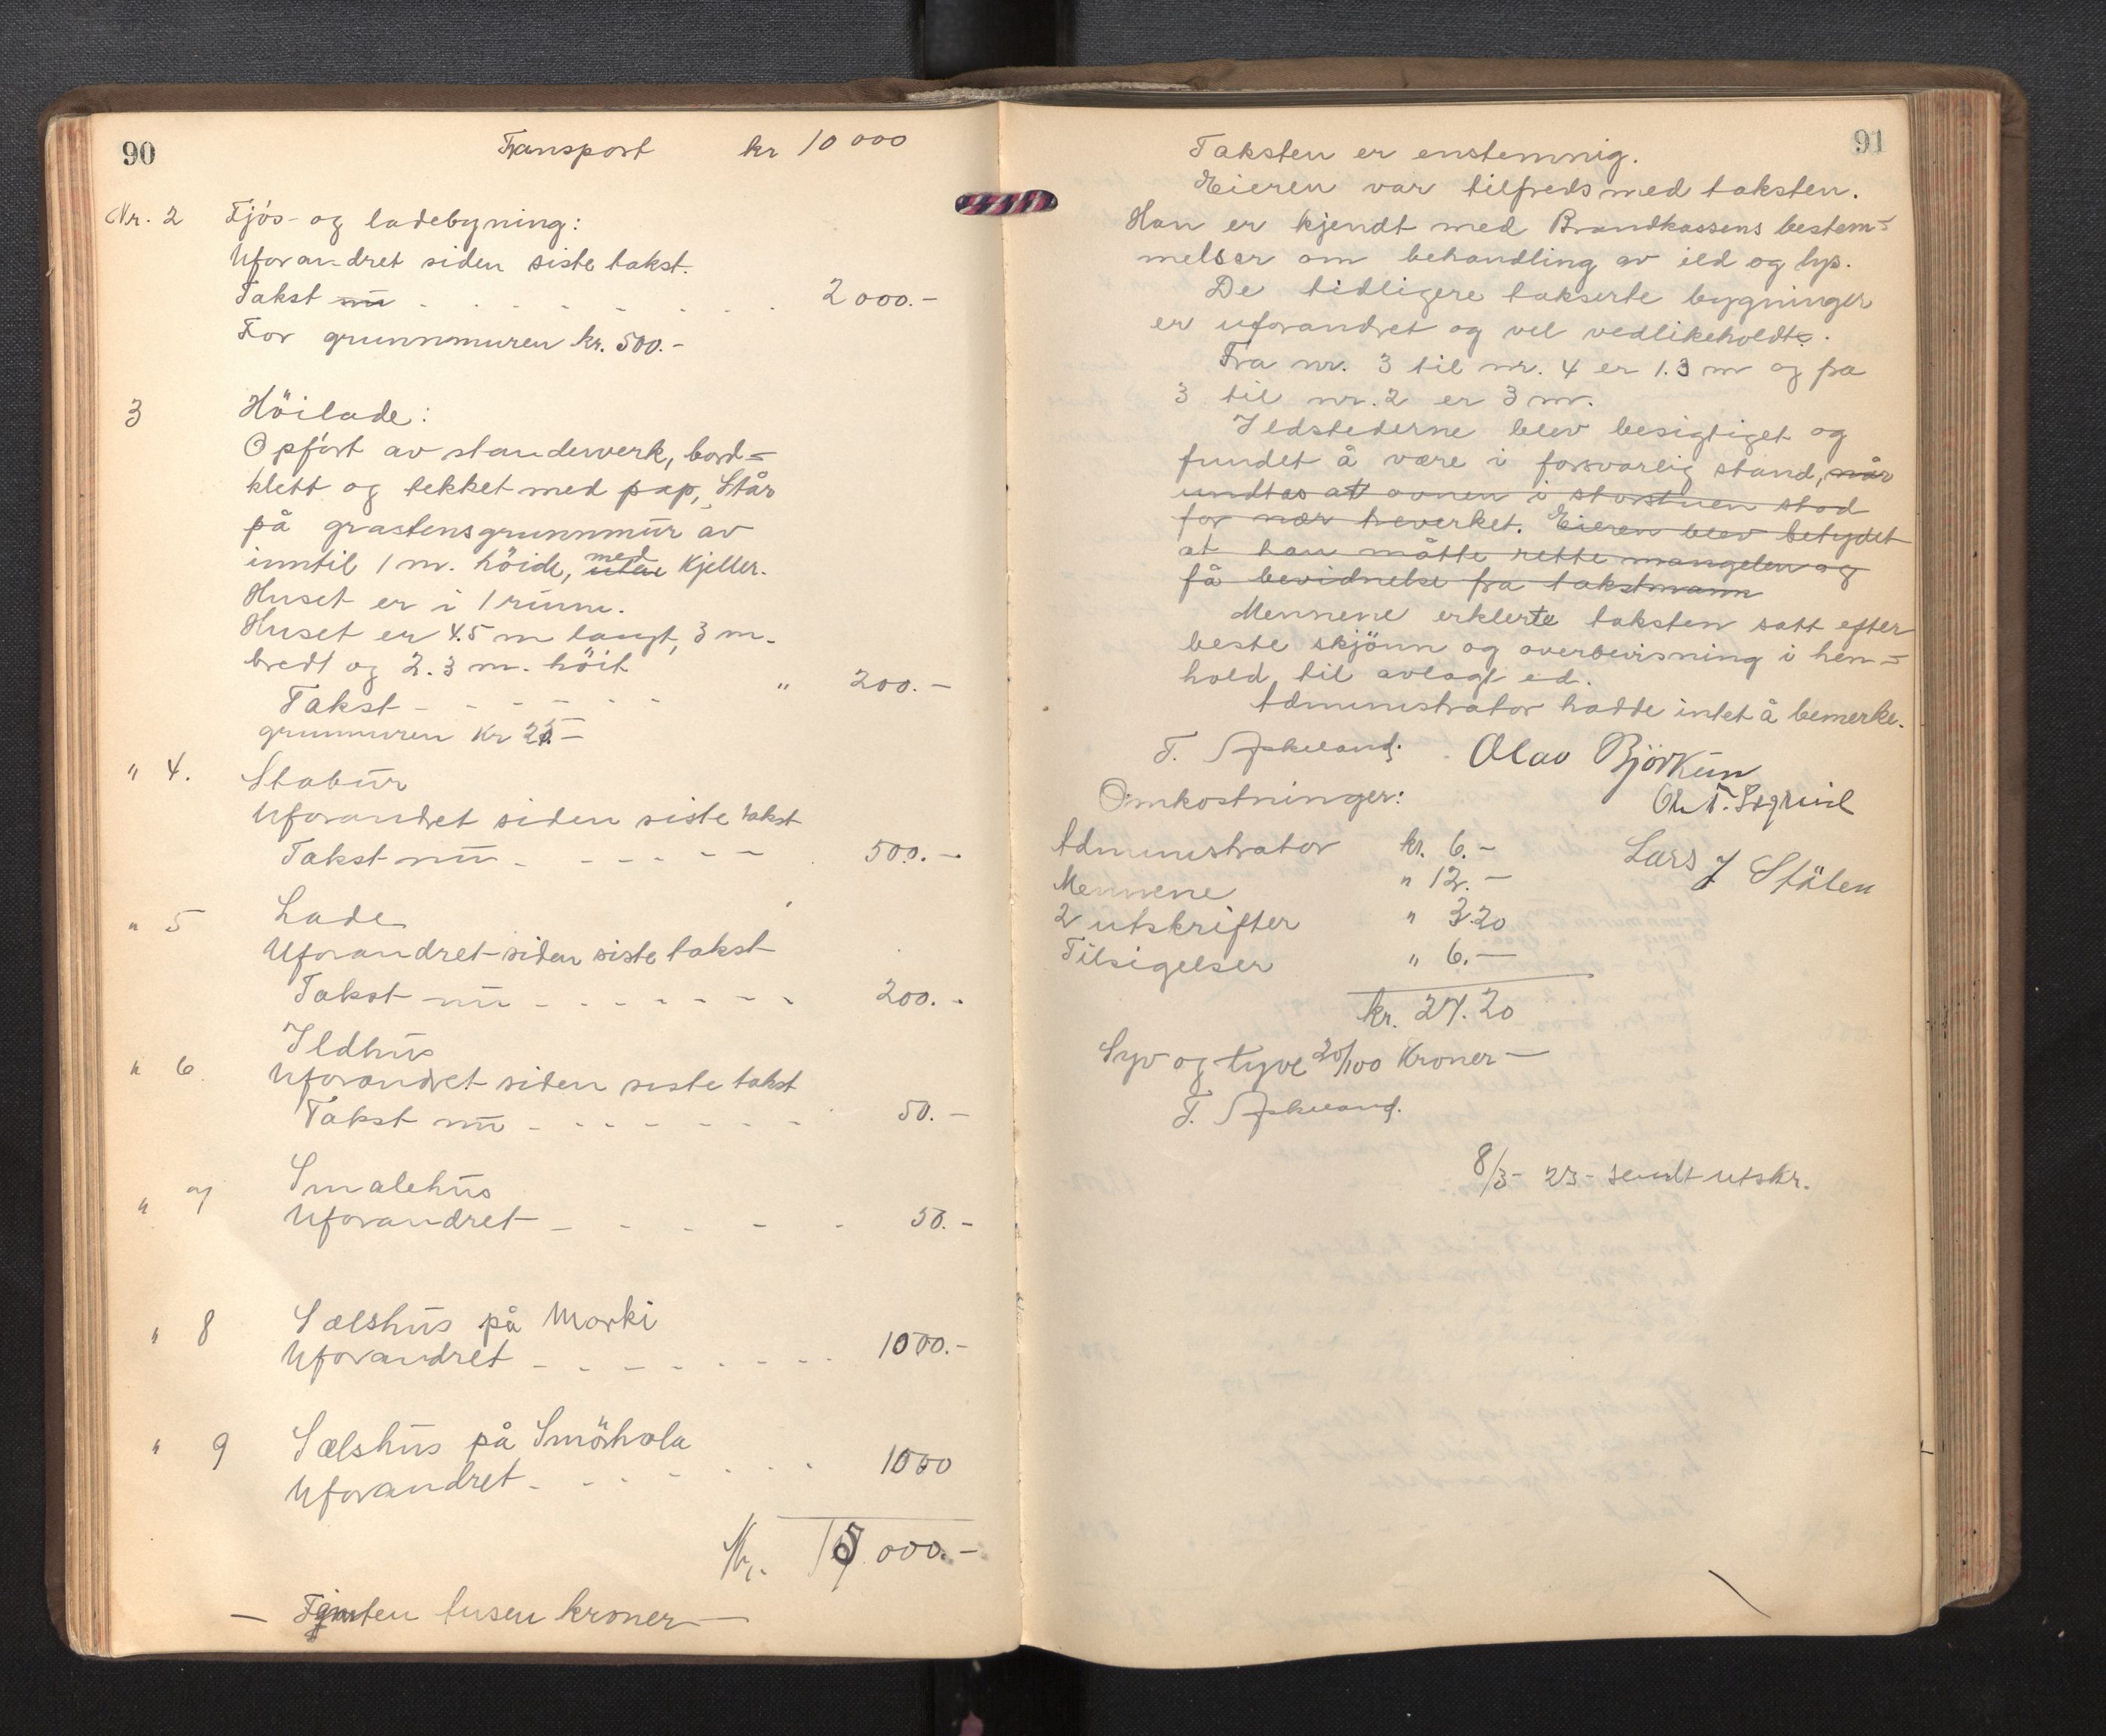 90
Transport kr 10 000
Nr. 2 Fjös- og ladebygning:
Uforandret siden siste takst.
Takst nu - - - - - - 2000.-
For grunnmuren kr. 500.-
3 Höilade:
Opfört av standerverk, bord-
klett og tekket med pap, Står
på grastensgrunnmur av
inntil 1 m. höide, med uten Kjeller.
Huset er i 1 rum.
Huset er 4.5 m langt, 3 m.
bredt og 2.3 m. höit
Takst - - - - - " 200.-
grunmuren Kr
" 4. Stabur
Uforandret siden siste takst
Takst nu - - - - - 500.-
" 5 Lade
Uforandret siden siste takst
Takst nu - - - - - - 200.-
Ildhus
" 6 Uforandret siden siste takst
Takst nu - - - - - - 50.-
Smalehus
" 7 Uforandret - - - - - 50.-
" 8 Sælshus på Morki
Uforandret - - - - - - - 1000.-
" 9 Sælshus på Smörhola
Uforandret - - - - - - 1000
Kr. 15 000.-
- Femten tusen kroner -
91
Taksten er enstemmig.
Eieren var tilfreds med taksten.
Han er kjendt med Brandkassens bestem-
melser om behandling av ild og lys.
De tidligere takserte bygninger
er uforandret og vel vedlikeholdt.
Fra nr. 3 til nr. 4 er 1.3 m og fra
3 til nr. 2 er 3 m.
Ildstederne blev besigtiget og
fundet å være i forsvarlig stand, når
undtas at ovnen i storstuen stod
for nær treverket. Eieren blev betydet
at han måtte rette mangelen og
få bevidnelse fra takstmann
Mennene erklerte taksten satt efter
beste skjönn og overbevisning i hen-
hold til avlagt ed.
Administrator hadde intet å bemerke.
T. Askeland. Olav Björkum
Omkostninger:
Administrator kr. 6.-
Lars J Stålen
Mennene " 12.-
2 utskrifter " 3.20
Tilsigelser " 6.-
kr. 27.20
Syv og tyve 20/100 Kroner -
T. Askeland.
8/3- 23- sendt utskr.